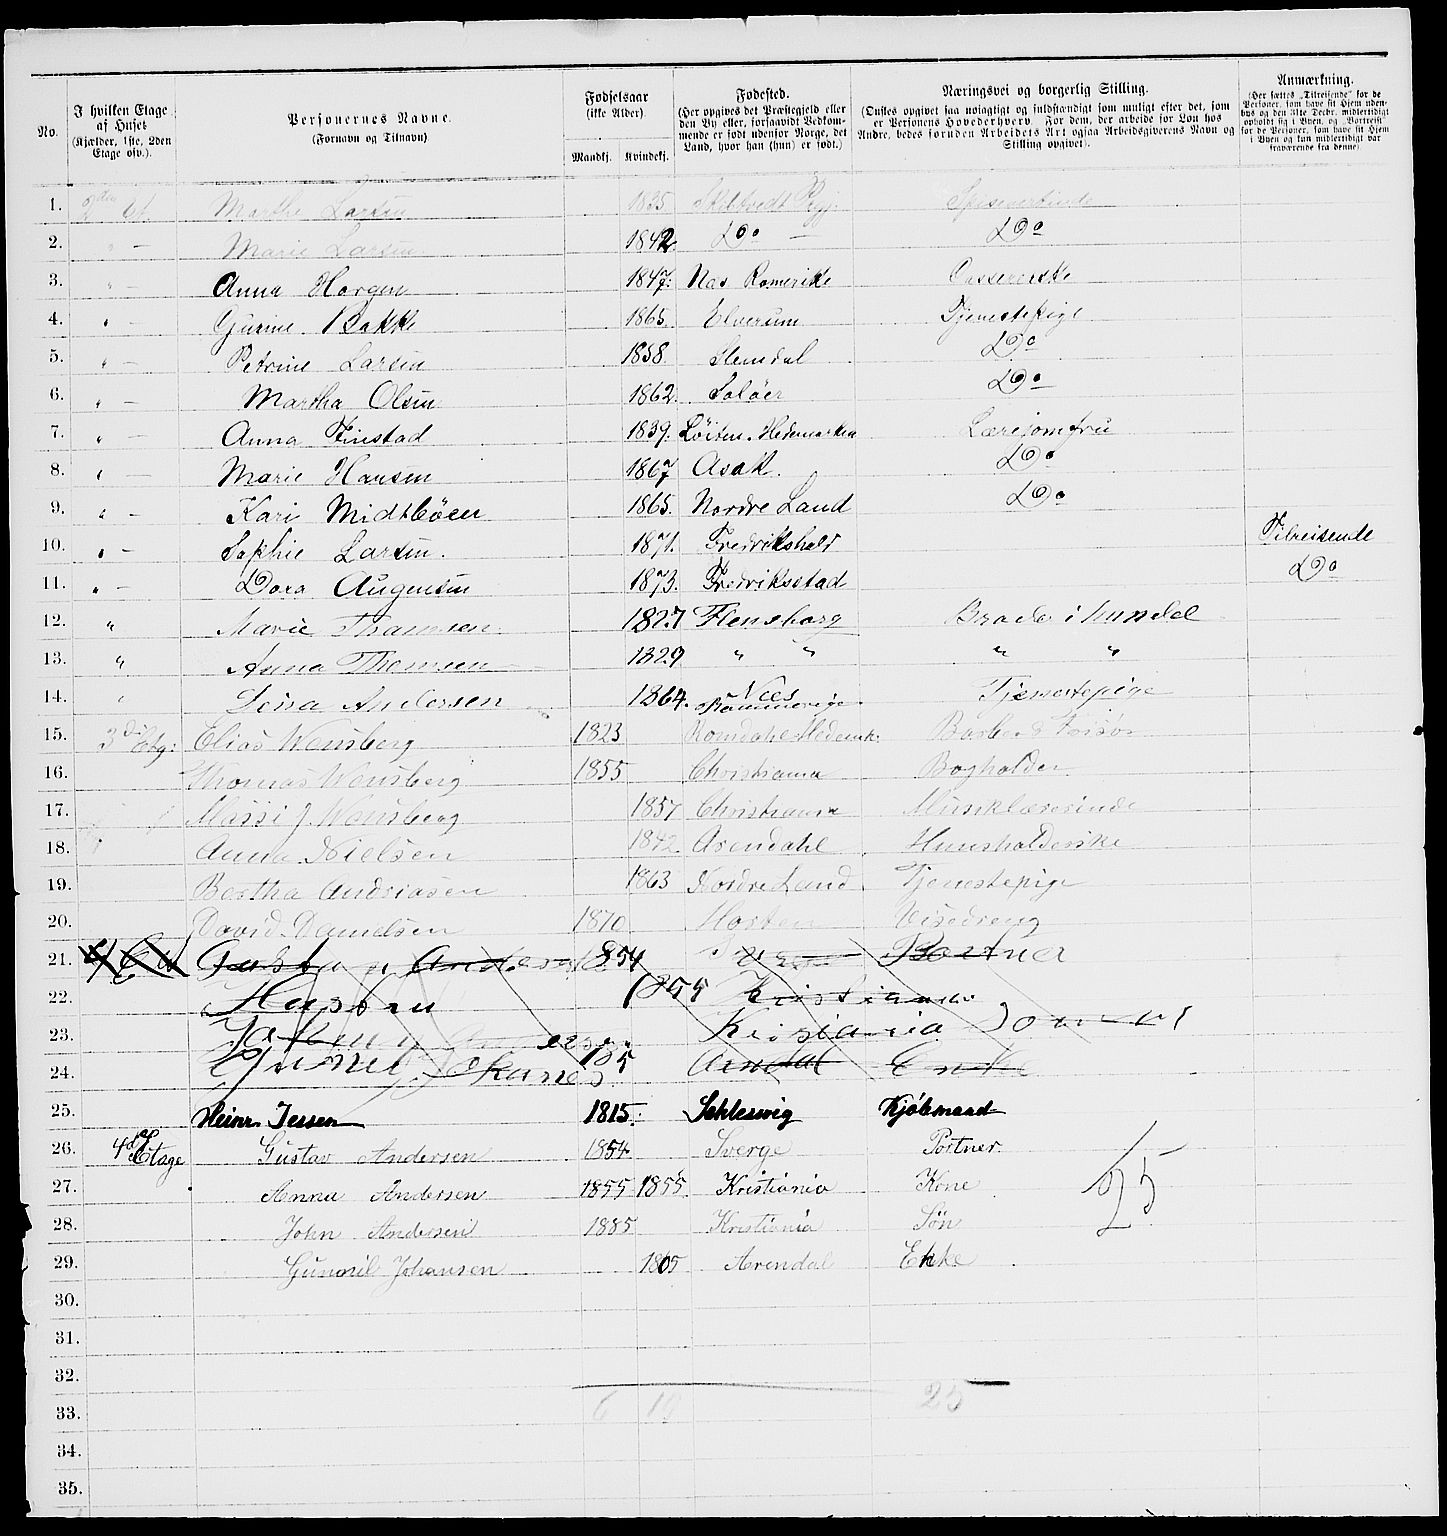 No. | I hvilken Etage af Huset (Kjælder, 1ste, 2den Etage osv.). | Personernes Navne. (Fornavn og Tilnavn) | Fødselsaar (ikke Alder). Mandkj. Kvindekj. | Fødested. (Her opgives det Præstegjeld eller den By eller, forsaavidt Vedkommende er født udenfor Norge, det Land, hvor han (hun) er født.) | Næringsvei og borgerlig Stilling. (Ønskes opgivet saa nøiagtigt og fuldstændigt som muligt efter det, som er Personens Hovederhverv. For dem, der arbeide for Løn hos Andre, bedes foruden Arbeidets Art ogsaa Arbeidsgiverens Navn og Stilling opgivet). | Anmærkning. (Her sættes „Tilreisende“ for de Personer, som have sit Hjem udenbys og den 31te Decbr. midlertidigt opholdt sig i Byen, og „Bortreist“ for de Personer, som have sit Hjem i Byen og kun midlertidigt var fraværende fra denne).
1. 2den Et. Marthe Larsen 1835 Skibtvedt Pgj. Spiseværtinde
2. " — Marie Larsen 1842. Do — Do
3. " — Anna Horgen 1847. Nas Romerike Cassererske
4. " — Gurine Bakke 1865. Elverum Tjenestepige
5. " — Petrine Larsen 1858 Slemdal Do
6. " — Martha Olsen 1862. Soløer Do
7. " — Anna Finstad 1839. Løiten. Hedemarken Lærejomfru
8. " — Marie Hansen 1867 Asak. Do
9. " — Kari Midtbøen 1865. Nordre Land Do
10. " — Sophie Larsen. 1871. Fredrikshald Tilreisende
11. " — Dora Augensen 1873. Fredriksstad Do
12. " Marie Thamsen 1827 Flensborg Brode i handel
13. " Anna Thomsen 1829 " " " "
14. " Lina Andersen 1864. Næs Rommerige Tjenestepige
15. 3di Etg: Elias Wensberg 1823 Romdahl Hedemk. Barber & Frisør
16. Thomas Wensberg 1855 Christiania Bogholder
17. Massi J. Wensberg 1857 Christiania Musiklærerinde
18. Anna Nielsen 1842 Arendahl Huusholderske
19. Bertha Andriasen 1863 Nordre Land Tjenestepige
20. David Danielsen 1870 Visedreng
21. Andersen 1854 Portner
22. Hustru 1855 Kristiania
23. Kristiania
24. Arndal Enke
25. Heinr. Jessen 1815. Schleswig Kjøbmand
26. 4de Etage Gustav Andersen 1854 Sverge Portner.
27. Anna Andersen 1855 1855 Kristiania Kone
28. John Andersen 1885 Kristiania Søn
29. Gunnil Johansen 1805 Arendal Enke
25
30.
31.
32.
33. 6 19 25
34.
35.